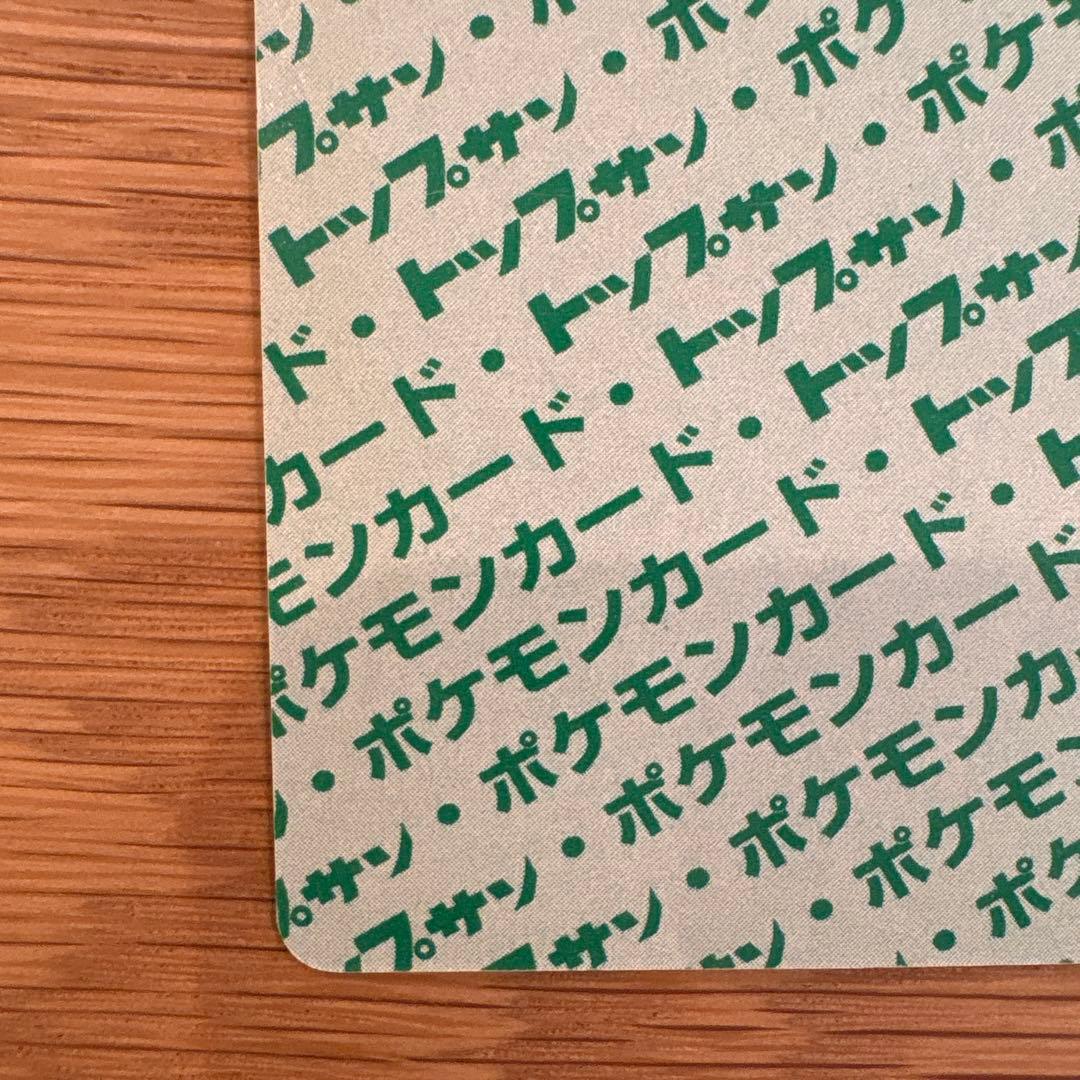 サン
プサン・
トップサン・ポ
ド・トップサン・ポケ
カード・トップサン・ポケ
モンカード・トップサン・ポ
ポケモンカード・トップサン
・ポケモンカード・トップ
プサン・ポケモンカード・ト
プサン・ポケモンカード
サン・ポケモンカ
ン・ポケモ
・ポケ